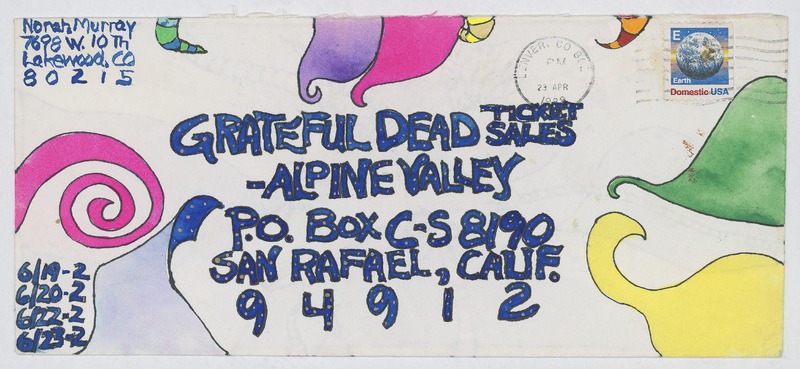 Norah Murray
7698 W. 10TH
Lakewood, CO
80215
DENVER, CO
PM
23 APR
E
Earth
Domestic USA
GRATEFUL DEAD TICKET SALES
-ALPINE VALLEY
P.O. BOX C-S 8190
SAN RAFAEL, CALIF.
94912
6/19-2
6/20-2
6/22-2
6/23-2